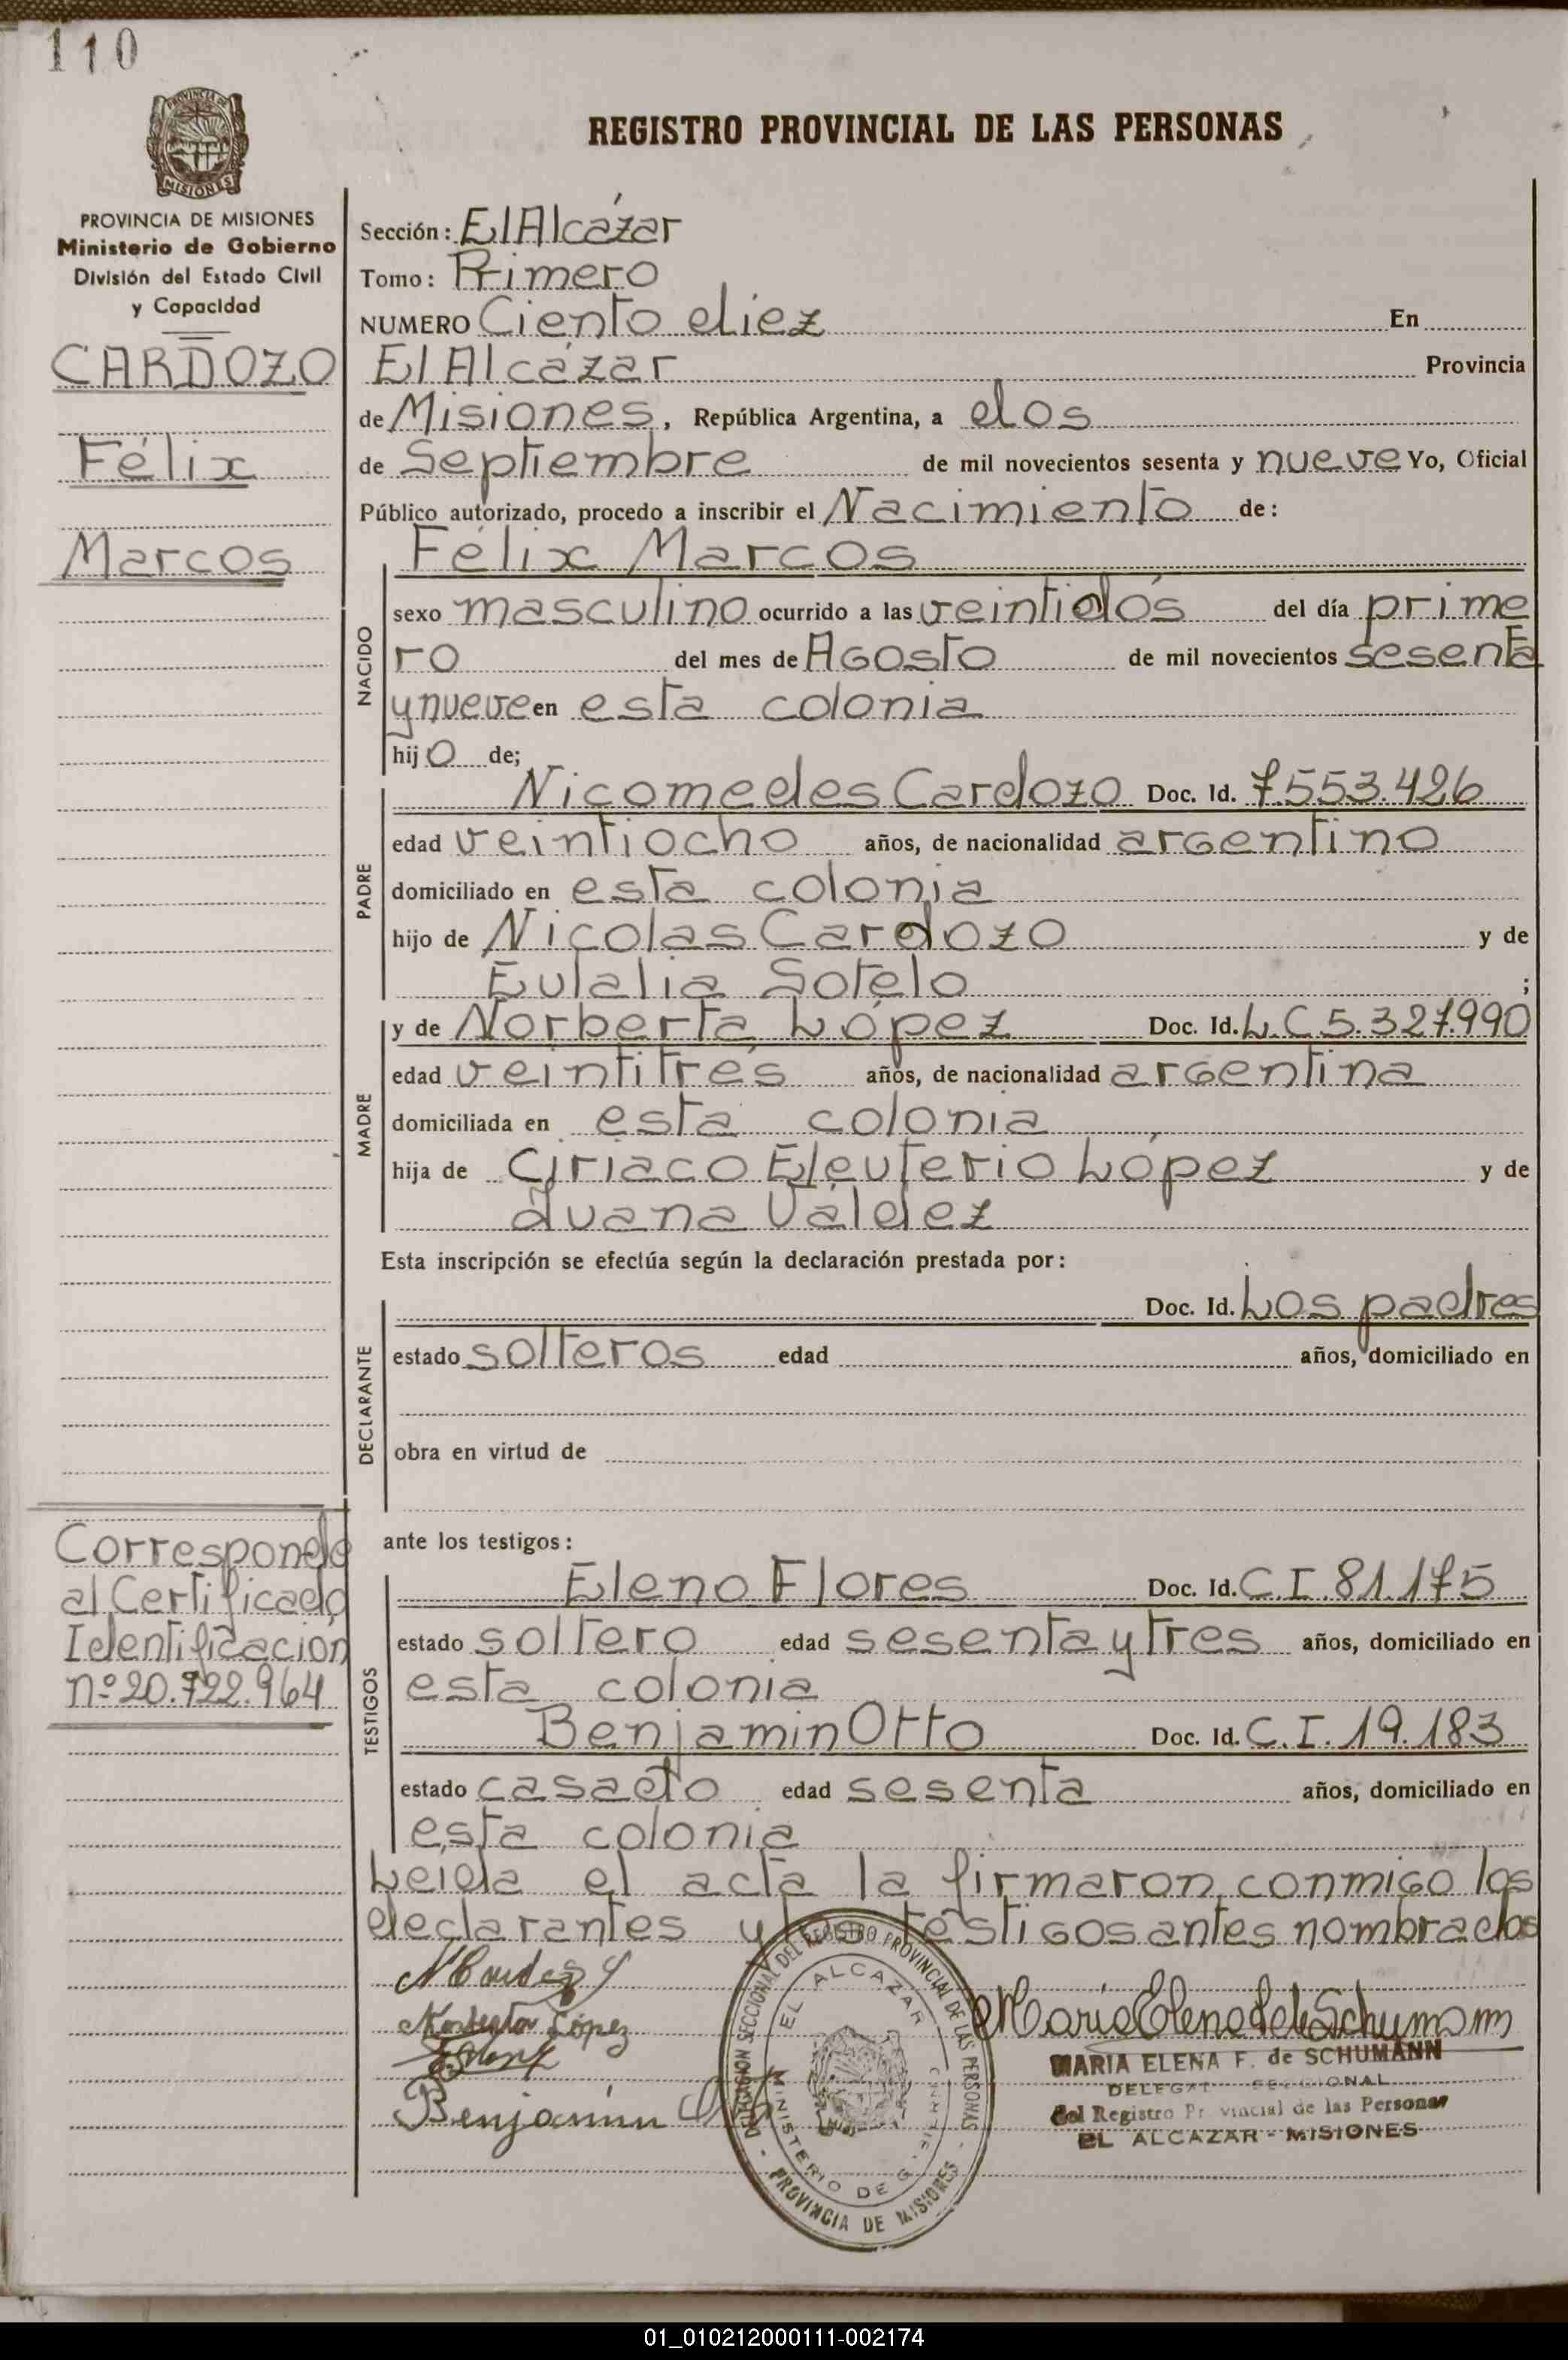 110
PROVINCIA DE MISIONES
MISIONES
REGISTRO PROVINCIAL DE LAS PERSONAS
PROVINCIA DE MISIONES
Ministerio de Gobierno
División del Estado Civil
y Capacidad
CARDOZO
Félix
Marcos
Sección: El Alcázar
Tomo: Primero
NUMERO Ciento diez En
El Alcázar Provincia
de Misiones, República Argentina, a dos
de Septiembre de mil novecientos sesenta y nueve Yo, Oficial
Público autorizado, procedo a inscribir el Nacimiento de:
Félix Marcos
NACIDO
sexo masculino ocurrido a las veintidós del día prime
ro del mes de Agosto de mil novecientos sesenta
y nueve en esta colonia
hijo de;
PADRE
Nicomedes Cardozo Doc. Id. 7.553.426
edad veintiocho años, de nacionalidad argentino
domiciliado en esta colonia
hijo de Nicolas Cardozo y de
Eulalia Sotelo ;
MADRE
y de Norberta López Doc. Id. L.C 5.327.990
edad veintitrés años, de nacionalidad argentina
domiciliada en esta colonia
hija de Ciriaco Eleuterio López y de
Juana Valdez
Esta inscripción se efectúa según la declaración prestada por:
DECLARANTE
Doc. Id. Los padres
estado solteros edad años, domiciliado en
obra en virtud de
Corresponde
al Certificado
Identificación
nº 20.722.964
ante los testigos:
TESTIGOS
Eleno Flores Doc. Id. C.I. 81.175
estado soltero edad sesenta y tres años, domiciliado en
esta colonia
Benjamin Otto Doc. Id. C.I. 19.183
estado casado edad sesenta años, domiciliado en
esta colonia
Leida el acta la firmaron conmigo los
declarantes y los testigos antes nombrados
Norberta López
Benjamin
DELEGACION SECCIONAL DEL REGISTRO PROVINCIAL DE LAS PERSONAS
EL ALCAZAR
MINISTERIO DE G.
PROVINCIA DE MISIONES
MARIA ELENA F. de SCHUMANN
del Registro Provincial de las Personas
EL ALCAZAR - MISIONES
01_010212000111-002174